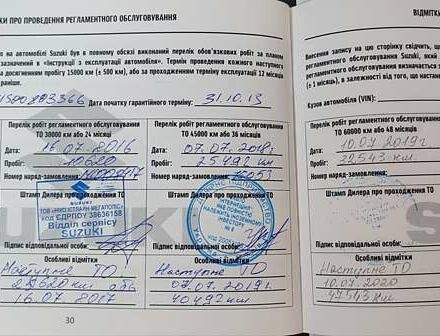 КИ ПРО ПРОВЕДЕННЯ РЕГЛАМЕНТНОГО ОБСЛУГОВУВАННЯ
но на автомобілі Suzuki був в повному обсязі виконаний перелік обов'язкових робіт за планом
зазначений в «Інструкції з експлуатації автомобіля». Термін проведення кожного наступного
за досягненням пробігу 15000 км (± 500 км), або за проходженням терміну експлуатації 12 місяців
раніше.
Дата початку гарантійного терміну: 31.10.13
Перелік робіт регламентного обслуговування
ТО 30000 км або 24 місяці
Дата: 16.07.2016
Пробіг: 10620
Номер наряд-замовлення:
Штамп Дилера про проходження ТО
SUZUKI
ТОВ «НІКО ІСТЛАЙН МЕГАПОЛІС»
код ЄДРПОУ 38636158
Відділ сервісу
SUZUKI
Підпис відповідальної особи:
Особливі відмітки
Наступне ТО
або
16.07.2017
30
Перелік робіт регламентного обслуговування
ТО 45000 км або 36 місяців
Дата: 07.07.2018
Пробіг: 25492 км
Номер наряд-замовлення:
Штамп Дилера про проходження ТО
Підпис відповідальної особи:
Особливі відмітки
Наступне ТО
07.07.2019
40492 км
ВІДМІТКИ
Внесення запису на цю сторінку свідчить, що
регламентного обслуговування Suzuki, який
(± 1 місяць), в залежності від того, що настане
Кузов автомобіля (VIN):
Перелік робіт регламентного обслуговування
ТО 60000 км або 48 місяців
Дата: 10.07.2019
Пробіг: 32543 км
Номер наряд-замовлення:
Штамп Дилера про проходження ТО
Підпис відповідальної особи:
Особливі відмітки
Наступне ТО
10.07.2020
47543 км